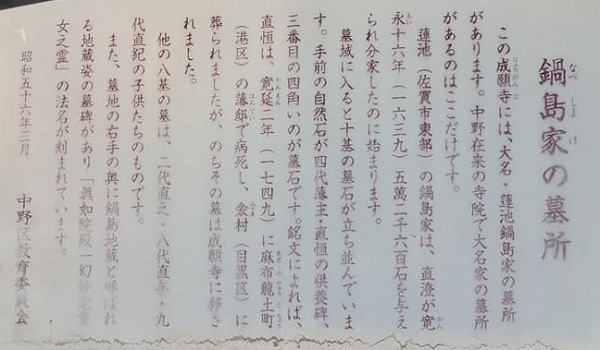 鍋島家の墓所
この成願寺には、大名・蓮池鍋島家の墓所
があります。中野在来の寺院で大名家の墓所
があるのはここだけです。
蓮池（佐賀市東部）の鍋島家は、直澄が寛
永十六年（一六三九）五萬二千六百石を与え
られ分家したのに始まります。
墓域に入ると十基の墓石が立ち並んでいま
す。手前の自然石が四代藩主・直恒の供養碑、
三番目の四角いのが墓石です。銘文によれば、
直恒は、寛延二年（一七四九）に麻布龍土町
（港区）の藩邸で病死し、衾村（目黒区）に
葬られましたが、のちその墓は成願寺に移さ
れました。
他の八基の墓は、二代直之・八代直与・九
代直紀の子供たちのものです。
また、墓地の右手の奥に鍋島地蔵と呼ばれ
る地蔵姿の墓碑があり「眞如院殿一幻妙
女之霊」の法名が刻まれています。
昭和五十六年三月
中野区教育委員会